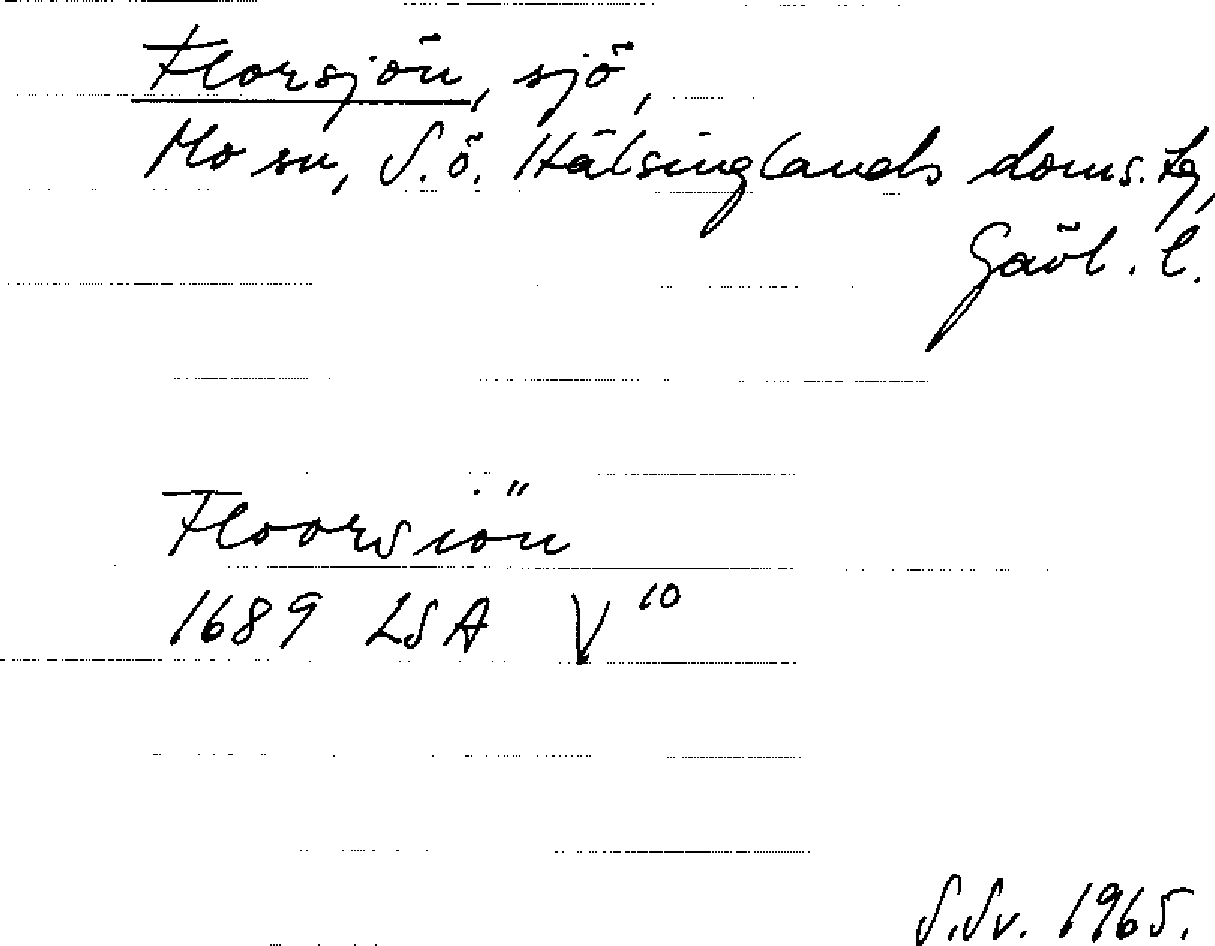 Florsjön, sjö,
Mo sn, S.ö. Hälsinglands doms.tg,
Gävl. l.
Floorsiön
1689 LSA V 10
S.Sv. 1965.